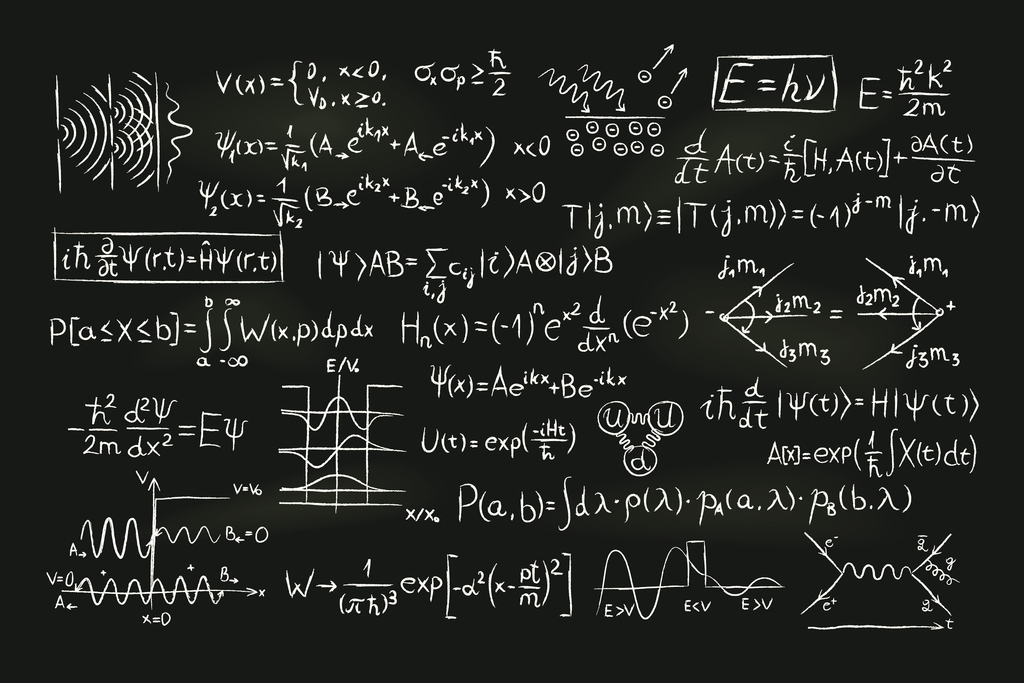 V(x)={0, x<0, V₀, x≥0.
σₓσₚ≥ħ/2
E=hν
E=ħ²k²/2m
Ψ₁(x)=1/√k₁(A→e^{ik₁x}+A←e^{-ik₁x}) x<0
d/dt A(t)=i/ħ[H,A(t)]+∂A(t)/∂t
Ψ₂(x)=1/√k₂(B→e^{ik₂x}+B←e^{-ik₂x}) x>0
T|j,m⟩≡|T(j,m)⟩=(-1)^{j-m}|j,-m⟩
iħ ∂/∂t Ψ(r,t)=ĤΨ(r,t)
|Ψ⟩AB=∑_{i,j} c_{ij}|i⟩A⊗|j⟩B
j₁m₁ j₁m₁
- j₂m₂ = j₂m₂ +
j₃m₃ j₃m₃
P[a≤X≤b]=∫_a^b ∫_{-∞}^{∞} W(x,p)dpdx
Hₙ(x)=(-1)ⁿe^{x²} d/dxⁿ(e^{-x²})
E/V₀
x/x₀
Ψ(x)=Ae^{ikx}+Be^{-ikx}
-ħ²/2m d²Ψ/dx²=EΨ
U(t)=exp(-iHt/ħ)
u u
d
iħ d/dt|Ψ(t)⟩=H|Ψ(t)⟩
A[x]=exp(1/ħ∫X(t)dt)
P(a,b)=∫dλ·ρ(λ)·p_A(a,λ)·p_B(b,λ)
V
V=V₀
A→ B←=0
V=0 + + B→ x
A←
x=0
W→1/(πħ)³ exp[-α²(x-pt/m)²]
E>V E<V E>V
e⁻ q̅
g
e⁺ q
t